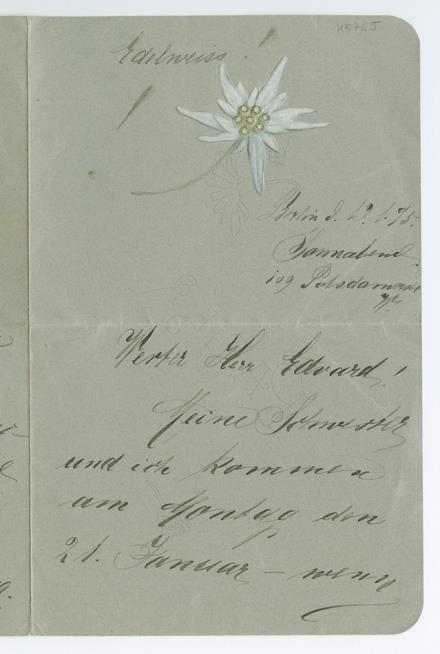 Edelweiss!
Berlin d. 19. 1. 95.
Sonnabend.
109 Potsdamerstr
Werter Herr Edvard!
Meine Schwester
und ich kommen
am Montag den
21. Januar – wenn